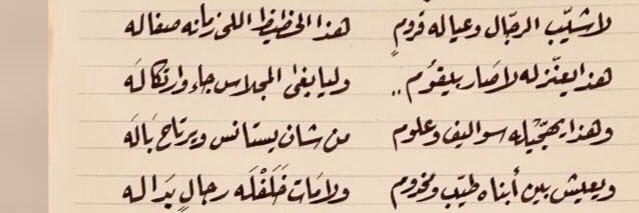 لا شيّب الرجّال وعياله قرومٍ هذا الحظيظ اللى زمانه صفاله
هذا يعنّزله لا صار بيقوم .. وليا بغى المجلاس جاه وارتكاله
وهذا يهجّيله سواليف وعلوم من شان يستانس ويرتاح باله
ويعيش بين أبناه طيّب ومخدوم ولا مات خَلّفْلَه رجالٍ بداله